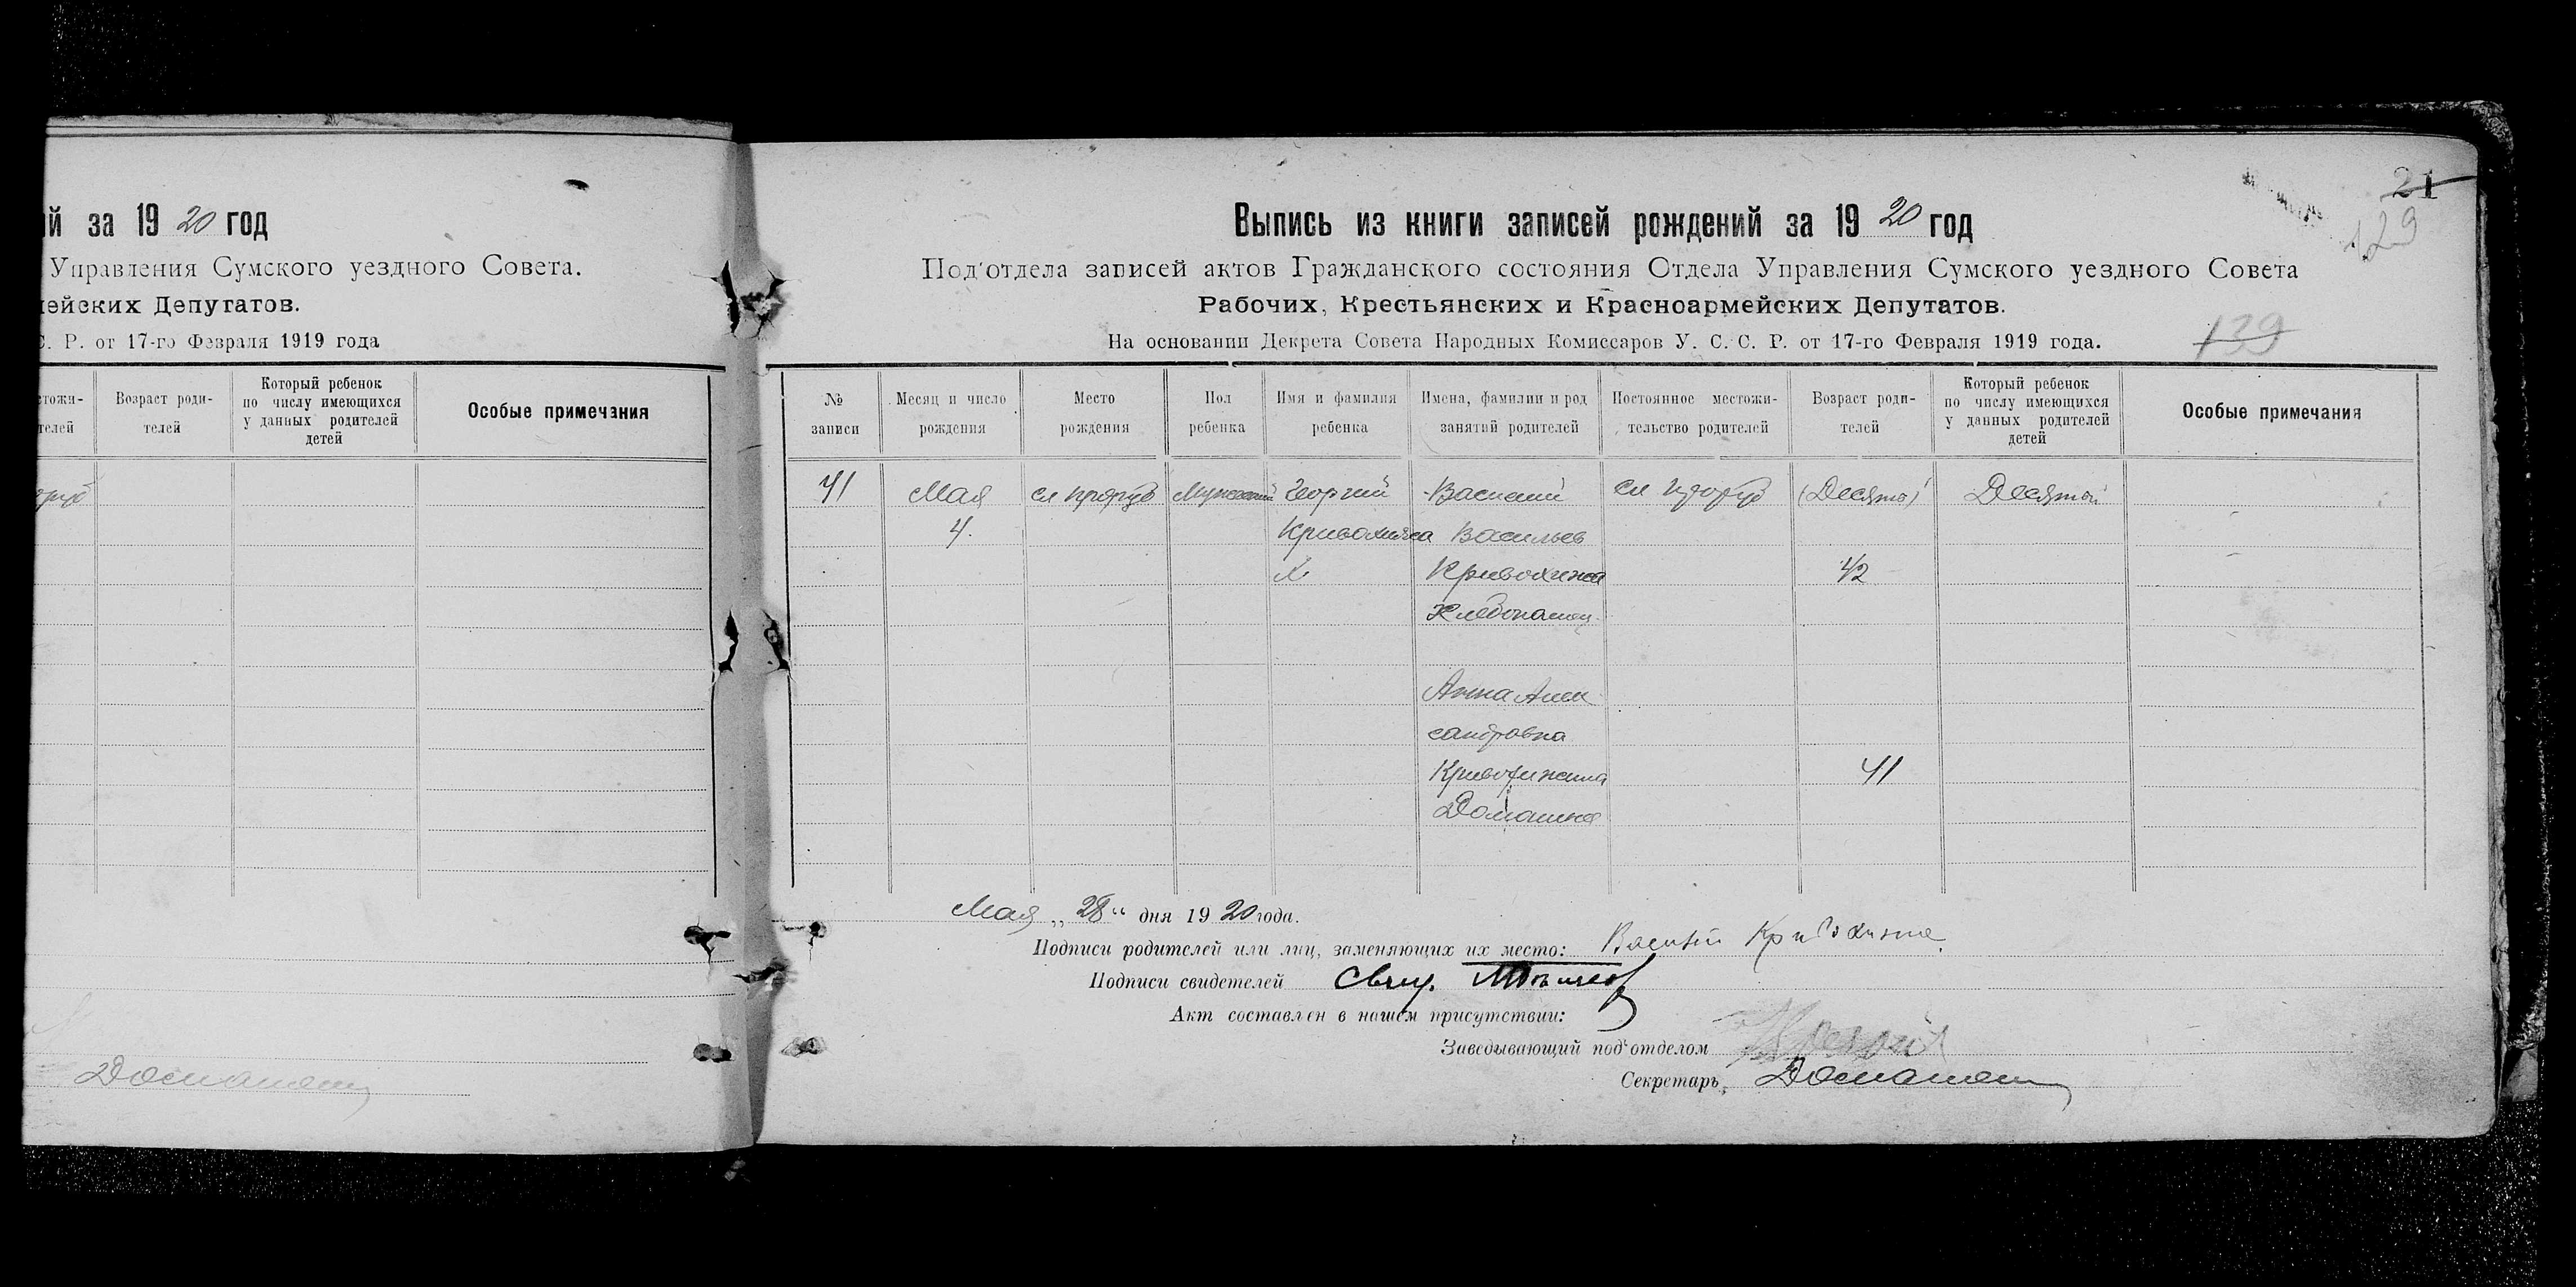 й за 1920 год
Управления Сумского уездного Совета.
мейских Депутатов.
С. Р. от 17-го Февраля 1919 года
стожи-
телей
Возраст роди-
телей
Который ребенок
по числу имеющихся
у данных родителей
детей
Особые примечания
Доманец
21
129
Выпись из книги записей рождений за 1920 год
Под'отдела записей актов Гражданского состояния Отдела Управления Сумского уездного Совета
Рабочих, Крестьянских и Красноармейских Депутатов.
На основании Декрета Совета Народных Комиссаров У. С. С. Р. от 17-го Февраля 1919 года.
139
№
записи
Месяц и число
рождения
Место
рождения
Пол
ребенка
Имя и фамилия
ребенка
Имена, фамилии и род
занятий родителей
Постоянное местожи-
тельство родителей
Возраст роди-
телей
Который ребенок
по числу имеющихся
у данных родителей
детей
Особые примечания
41 Мая сл Мужеский Георгий Василий сл (Десято) Десятой
4. Васильев
Кривохижа 42
Хлебопашец
Анна Алек
сандровна
Кривохижина 41
Домашнее
Мая „28“ дня 1920 года.
Подписи родителей или лиц, заменяющих их место: Василий Кривохижа
Подписи свидетелей
Акт составлен в нашем присутствии:
Заведывающий под'отделом
Секретарь,